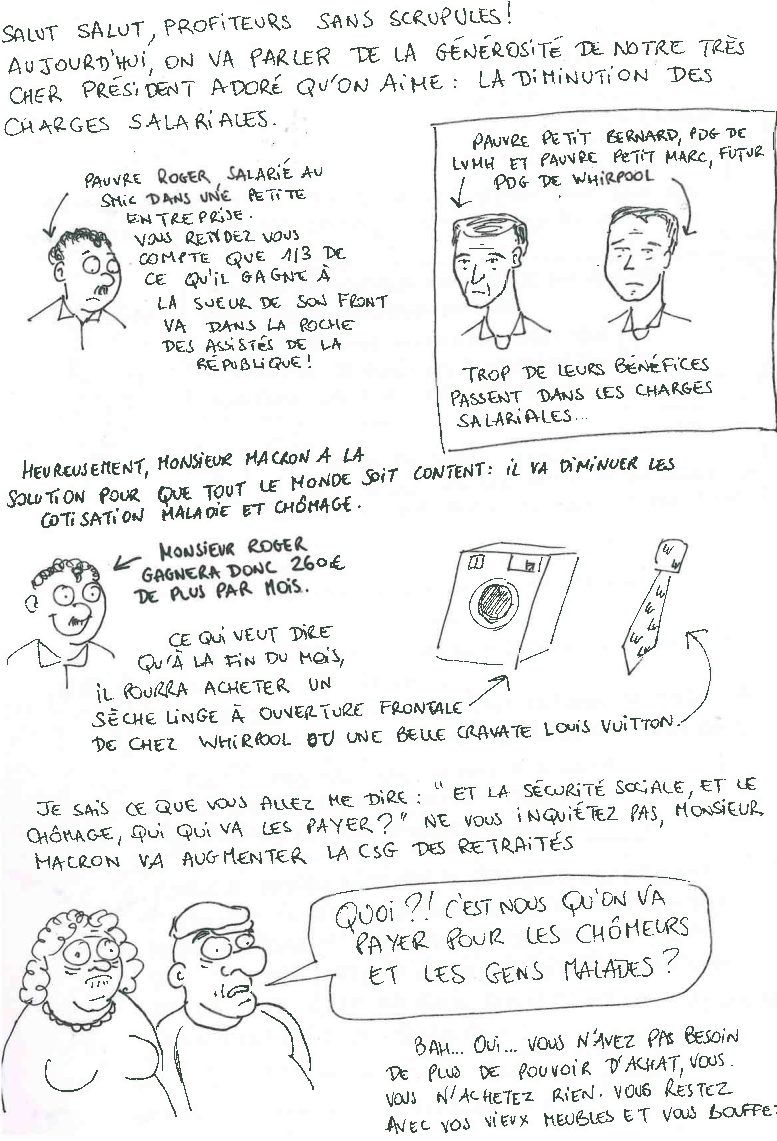 SALUT SALUT, PROFITEURS SANS SCRUPULES!
AUJOURD'HUI, ON VA PARLER DE LA GÉNÉROSITÉ DE NOTRE TRÈS
CHER PRÉSIDENT ADORÉ QU'ON AIME : LA DIMINUTION DES
CHARGES SALARIALES.
PAUVRE ROGER, SALARIÉ AU
SMIC DANS UNE PETITE
ENTREPRISE.
VOUS RENDEZ VOUS
COMPTE QUE 1/3 DE
CE QU'IL GAGNE À
LA SUEUR DE SON FRONT
VA DANS LA POCHE
DES ASSISTÉS DE LA
RÉPUBLIQUE!
PAUVRE PETIT BERNARD, PDG DE
LVMH ET PAUVRE PETIT MARC, FUTUR
PDG DE WHIRPOOL
TROP DE LEURS BÉNÉFICES
PASSENT DANS LES CHARGES
SALARIALES...
HEUREUSEMENT, MONSIEUR MACRON A LA
SOLUTION POUR QUE TOUT LE MONDE SOIT CONTENT : IL VA DIMINUER LES
COTISATION MALADIE ET CHÔMAGE.
MONSIEUR ROGER
GAGNERA DONC 260€
DE PLUS PAR MOIS.
CE QUI VEUT DIRE
QU'À LA FIN DU MOIS,
IL POURRA ACHETER UN
SÈCHE LINGE À OUVERTURE FRONTALE
DE CHEZ WHIRPOOL OU UNE BELLE CRAVATE LOUIS VUITTON.
JE SAIS CE QUE VOUS ALLEZ ME DIRE : "ET LA SÉCURITÉ SOCIALE, ET LE
CHÔMAGE, QUI QUI VA LES PAYER?" NE VOUS INQUIÉTEZ PAS, MONSIEUR
MACRON VA AUGMENTER LA CSG DES RETRAITÉS
QUOI?! C'EST NOUS QU'ON VA
PAYER POUR LES CHÔMEURS
ET LES GENS MALADES?
BAH... OUI... VOUS N'AVEZ PAS BESOIN
DE PLUS DE POUVOIR D'ACHAT, VOUS.
VOUS N'ACHETEZ RIEN. VOUS RESTEZ
AVEC VOS VIEUX MEUBLES ET VOUS BOUFFEZ